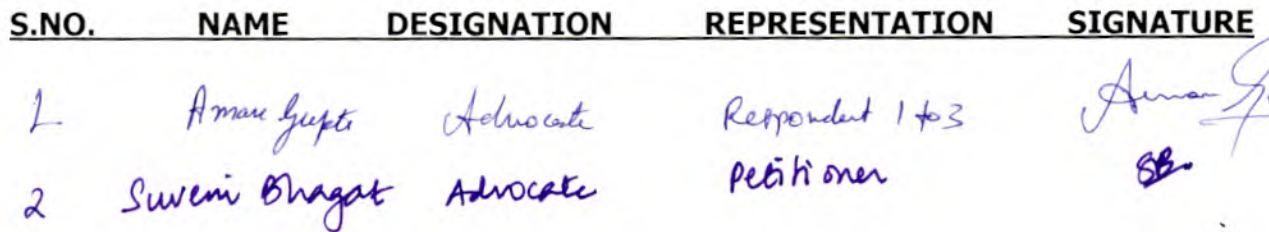 S.NO. NAME DESIGNATION REPRESENTATION SIGNATURE
1 Aman Gupta Advocate Respondent 1 to 3 Aman
2 Suveni Bhagat Advocate Petitioner SB.